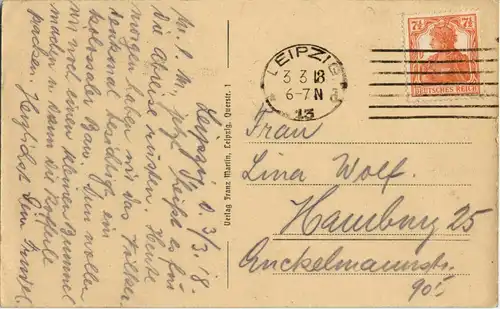 Leipzig d. 3/3.18.
M. l. M., jetzt heißt es für
die Abreise rüsten. Heute
morgen haben wir das Völker-
denkmal besichtigt, ein
kolossaler Bau. Nun wollen
wir noch einen kleinen Bummel
machen u. dann die Koffer
packen. Herzlichst Dein
Verlag Franz Martin, Leipzig, Querstr. 1
LEIPZIG
3 3 18
6-7 N
13
7½ 7½
DEUTSCHES REICH
Frau
Lina Wolf.
Hamburg 25
Anckelmannstr.